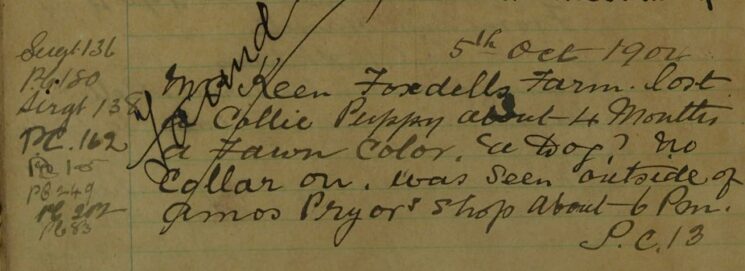 Sergt 136
PC 180
Sergt 138
PC. 162
PC 15
PC 249
PC 202
PC 83
Found
5th Oct 1904
Mr Keen Foxdells Farm. lost
a Collie Puppy about 4 Months
a Fawn Color. "a Dog," no
Collar on. was seen outside of
Amos Pryors Shop about 6 Pm.
P.C. 13